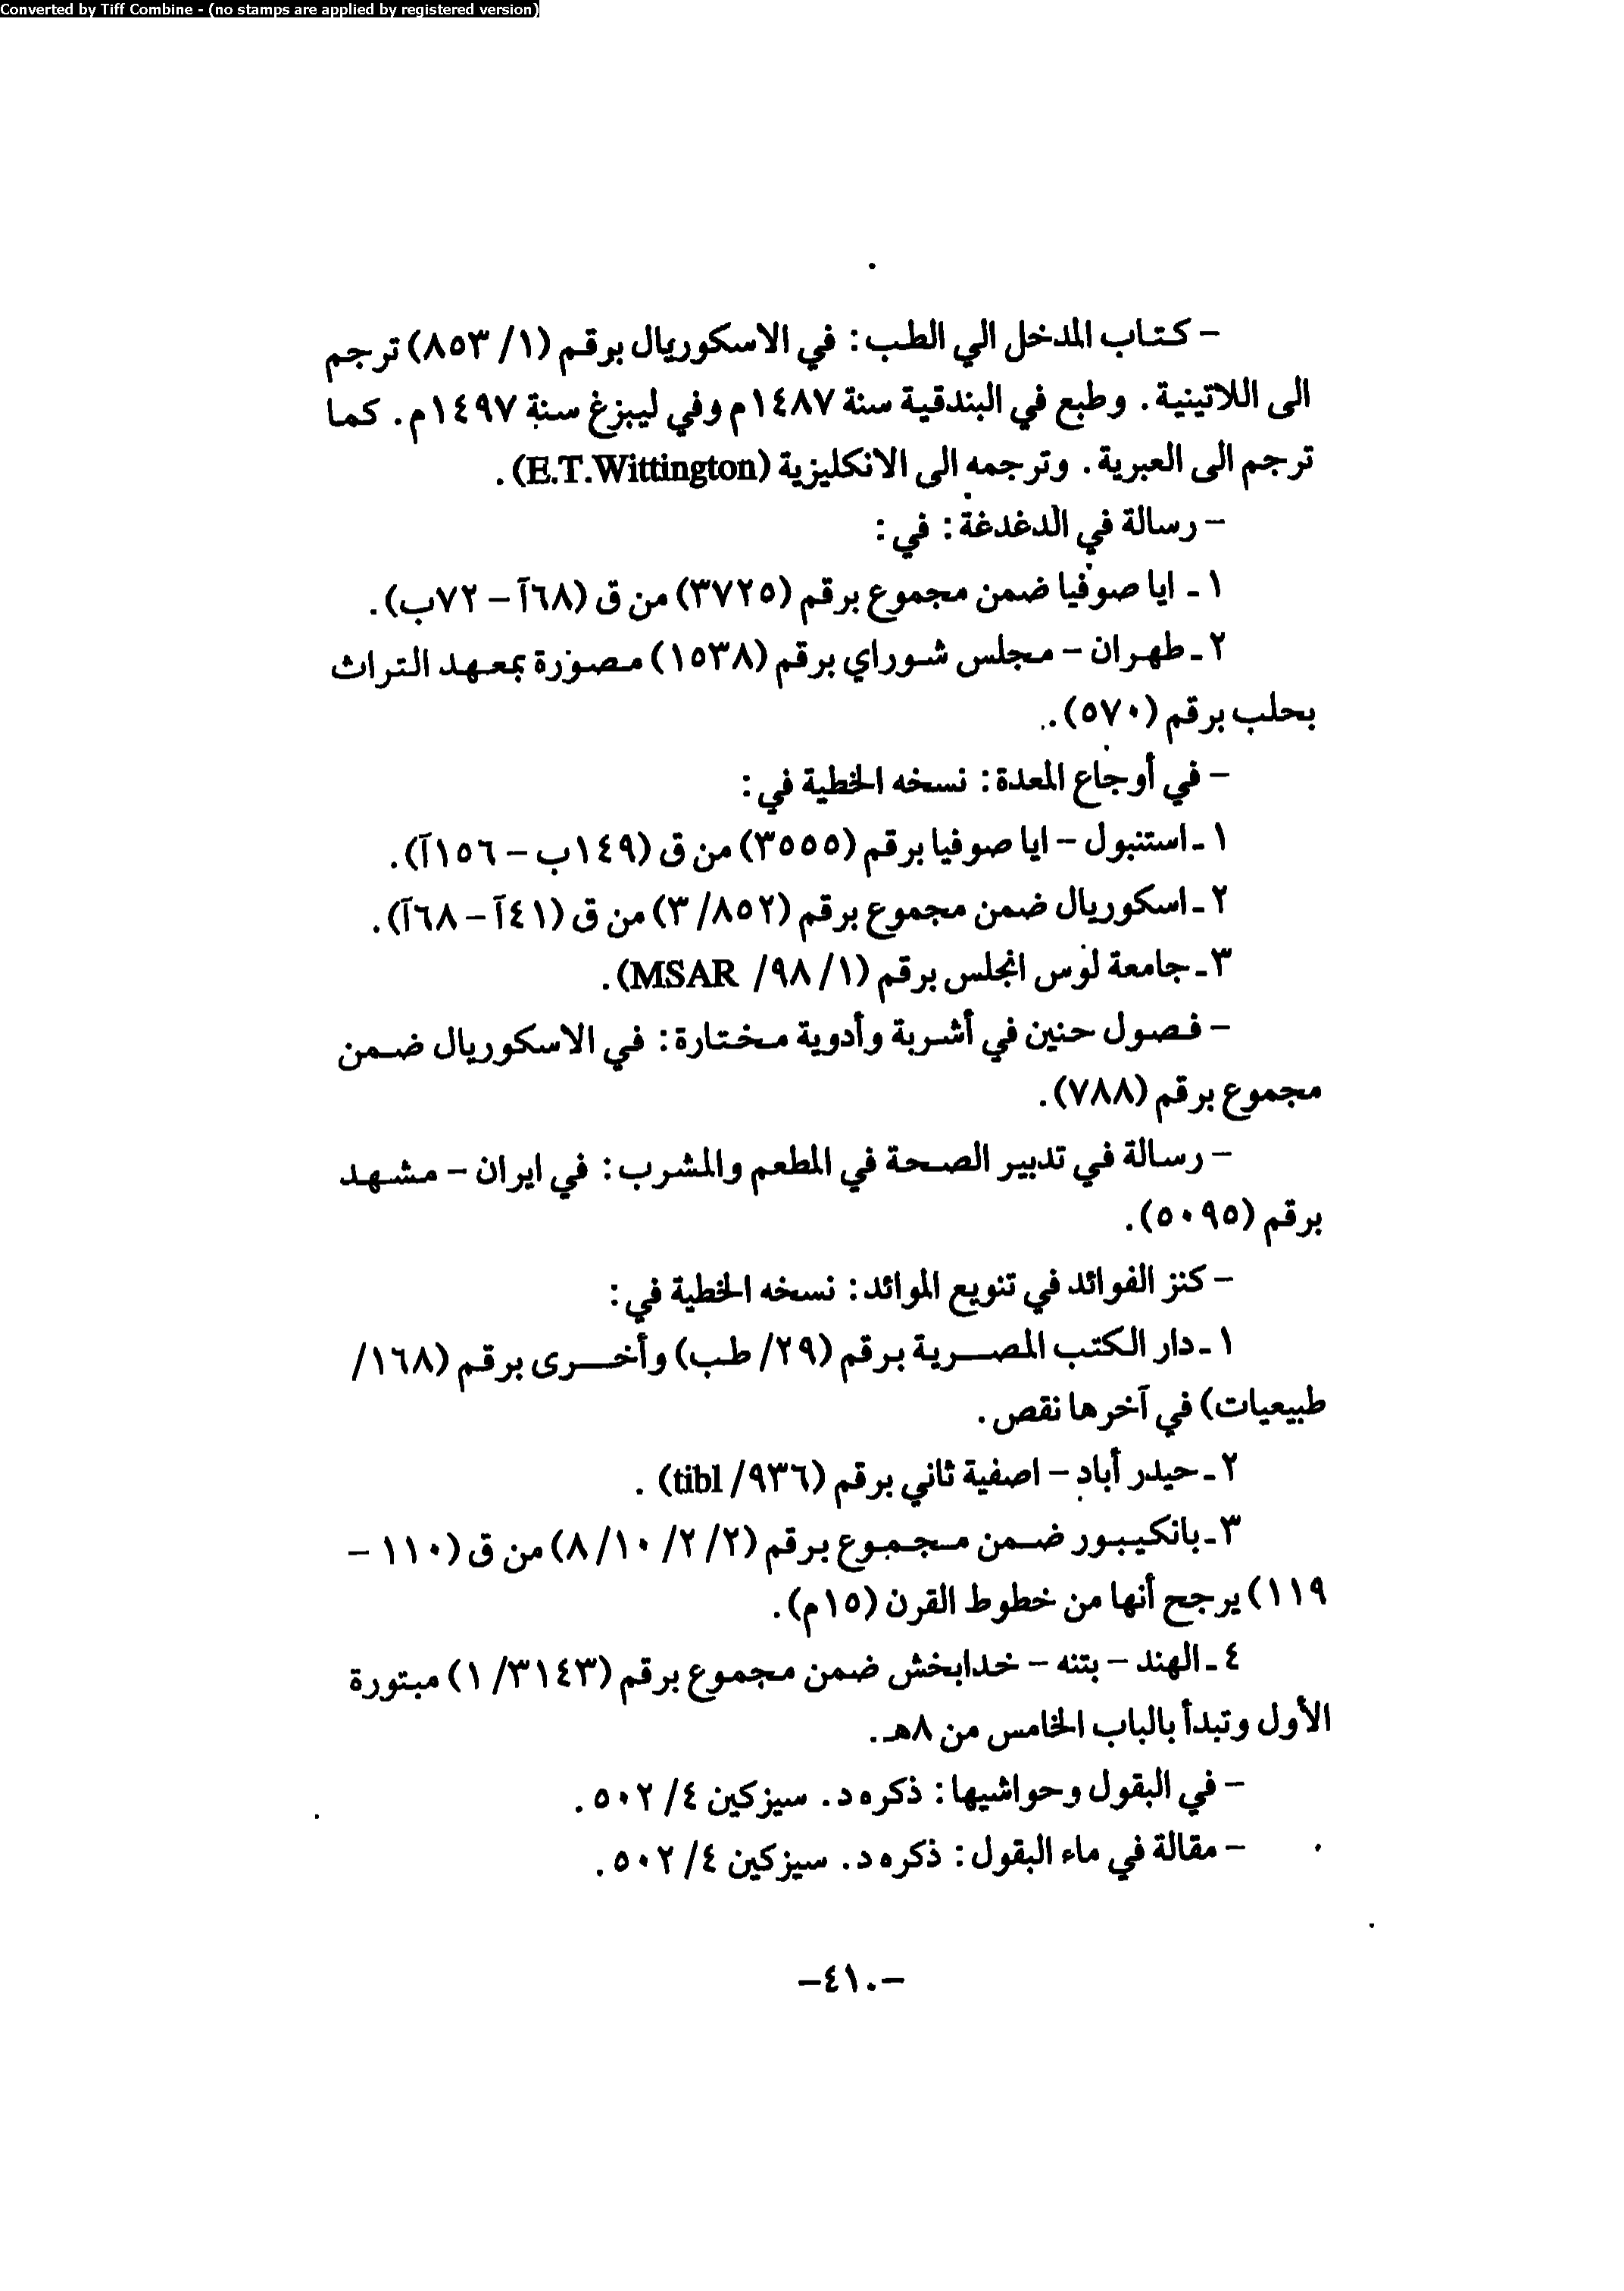 Converted by Tiff Combine - (no stamps are applied by registered version)
– كتاب المدخل الي الطب: في الاسكوريال برقم (١/ ٨٥٣) ترجم
الى اللاتينية. وطبع في البندقية سنة ١٤٨٧م وفي ليبزغ سنة ١٤٩٧م. كما
ترجم الى العبرية. وترجمه الى الانكليزية (E.T.Wittington).
– رسالة في الدغدغة: في:
١ـ ايا صوفيا ضمن مجموع برقم (٣٧٢٥) من ق (٦٨آ – ٧٢ب).
٢ـ طهران – مجلس شوراي برقم (١٥٣٨) مصورة بمعهد التراث
بحلب برقم (٥٧٠).
– في أوجاع المعدة: نسخه الخطية في:
١ـ استنبول – ايا صوفيا برقم (٣٥٥٥) من ق (١٤٩ب – ١٥٦آ).
٢ـ اسكوريال ضمن مجموع برقم (٨٥٢/ ٣) من ق (٤١آ – ٦٨آ).
٣ـ جامعة لوس انجلس برقم (١/ ٩٨/ MSAR).
– فصول حنين في أشربة وأدوية مختارة: في الاسكوريال ضمن
مجموع برقم (٧٨٨).
– رسالة في تدبير الصحة في المطعم والمشرب: في ايران – مشهد
برقم (٥٠٩٥).
– كنز الفوائد في تنويع الموائد: نسخه الخطية في:
١ـ دار الكتب المصرية برقم (٢٩/ طب) وأخرى برقم (١٦٨/
طبيعيات) في آخرها نقص.
٢ـ حيدر أباد – اصفية ثاني برقم (٩٣٦/ tibl) .
٣ـ بانكيبور ضمن مجموع برقم (٢/ ٢/ ١٠/ ٨) من ق (١١٠ –
١١٩) يرجح أنها من خطوط القرن (١٥م).
٤ـ الهند – بتنه – خدابخش ضمن مجموع برقم (٣١٤٣/ ١) مبتورة
الأول وتبدأ بالباب الخامس من ٨هـ.
– في البقول وحواشيها: ذكره د. سيزكين ٤/ ٥٠٢.
– مقالة في ماء البقول: ذكره د. سيزكين ٤/ ٥٠٢.
–٤١٠–